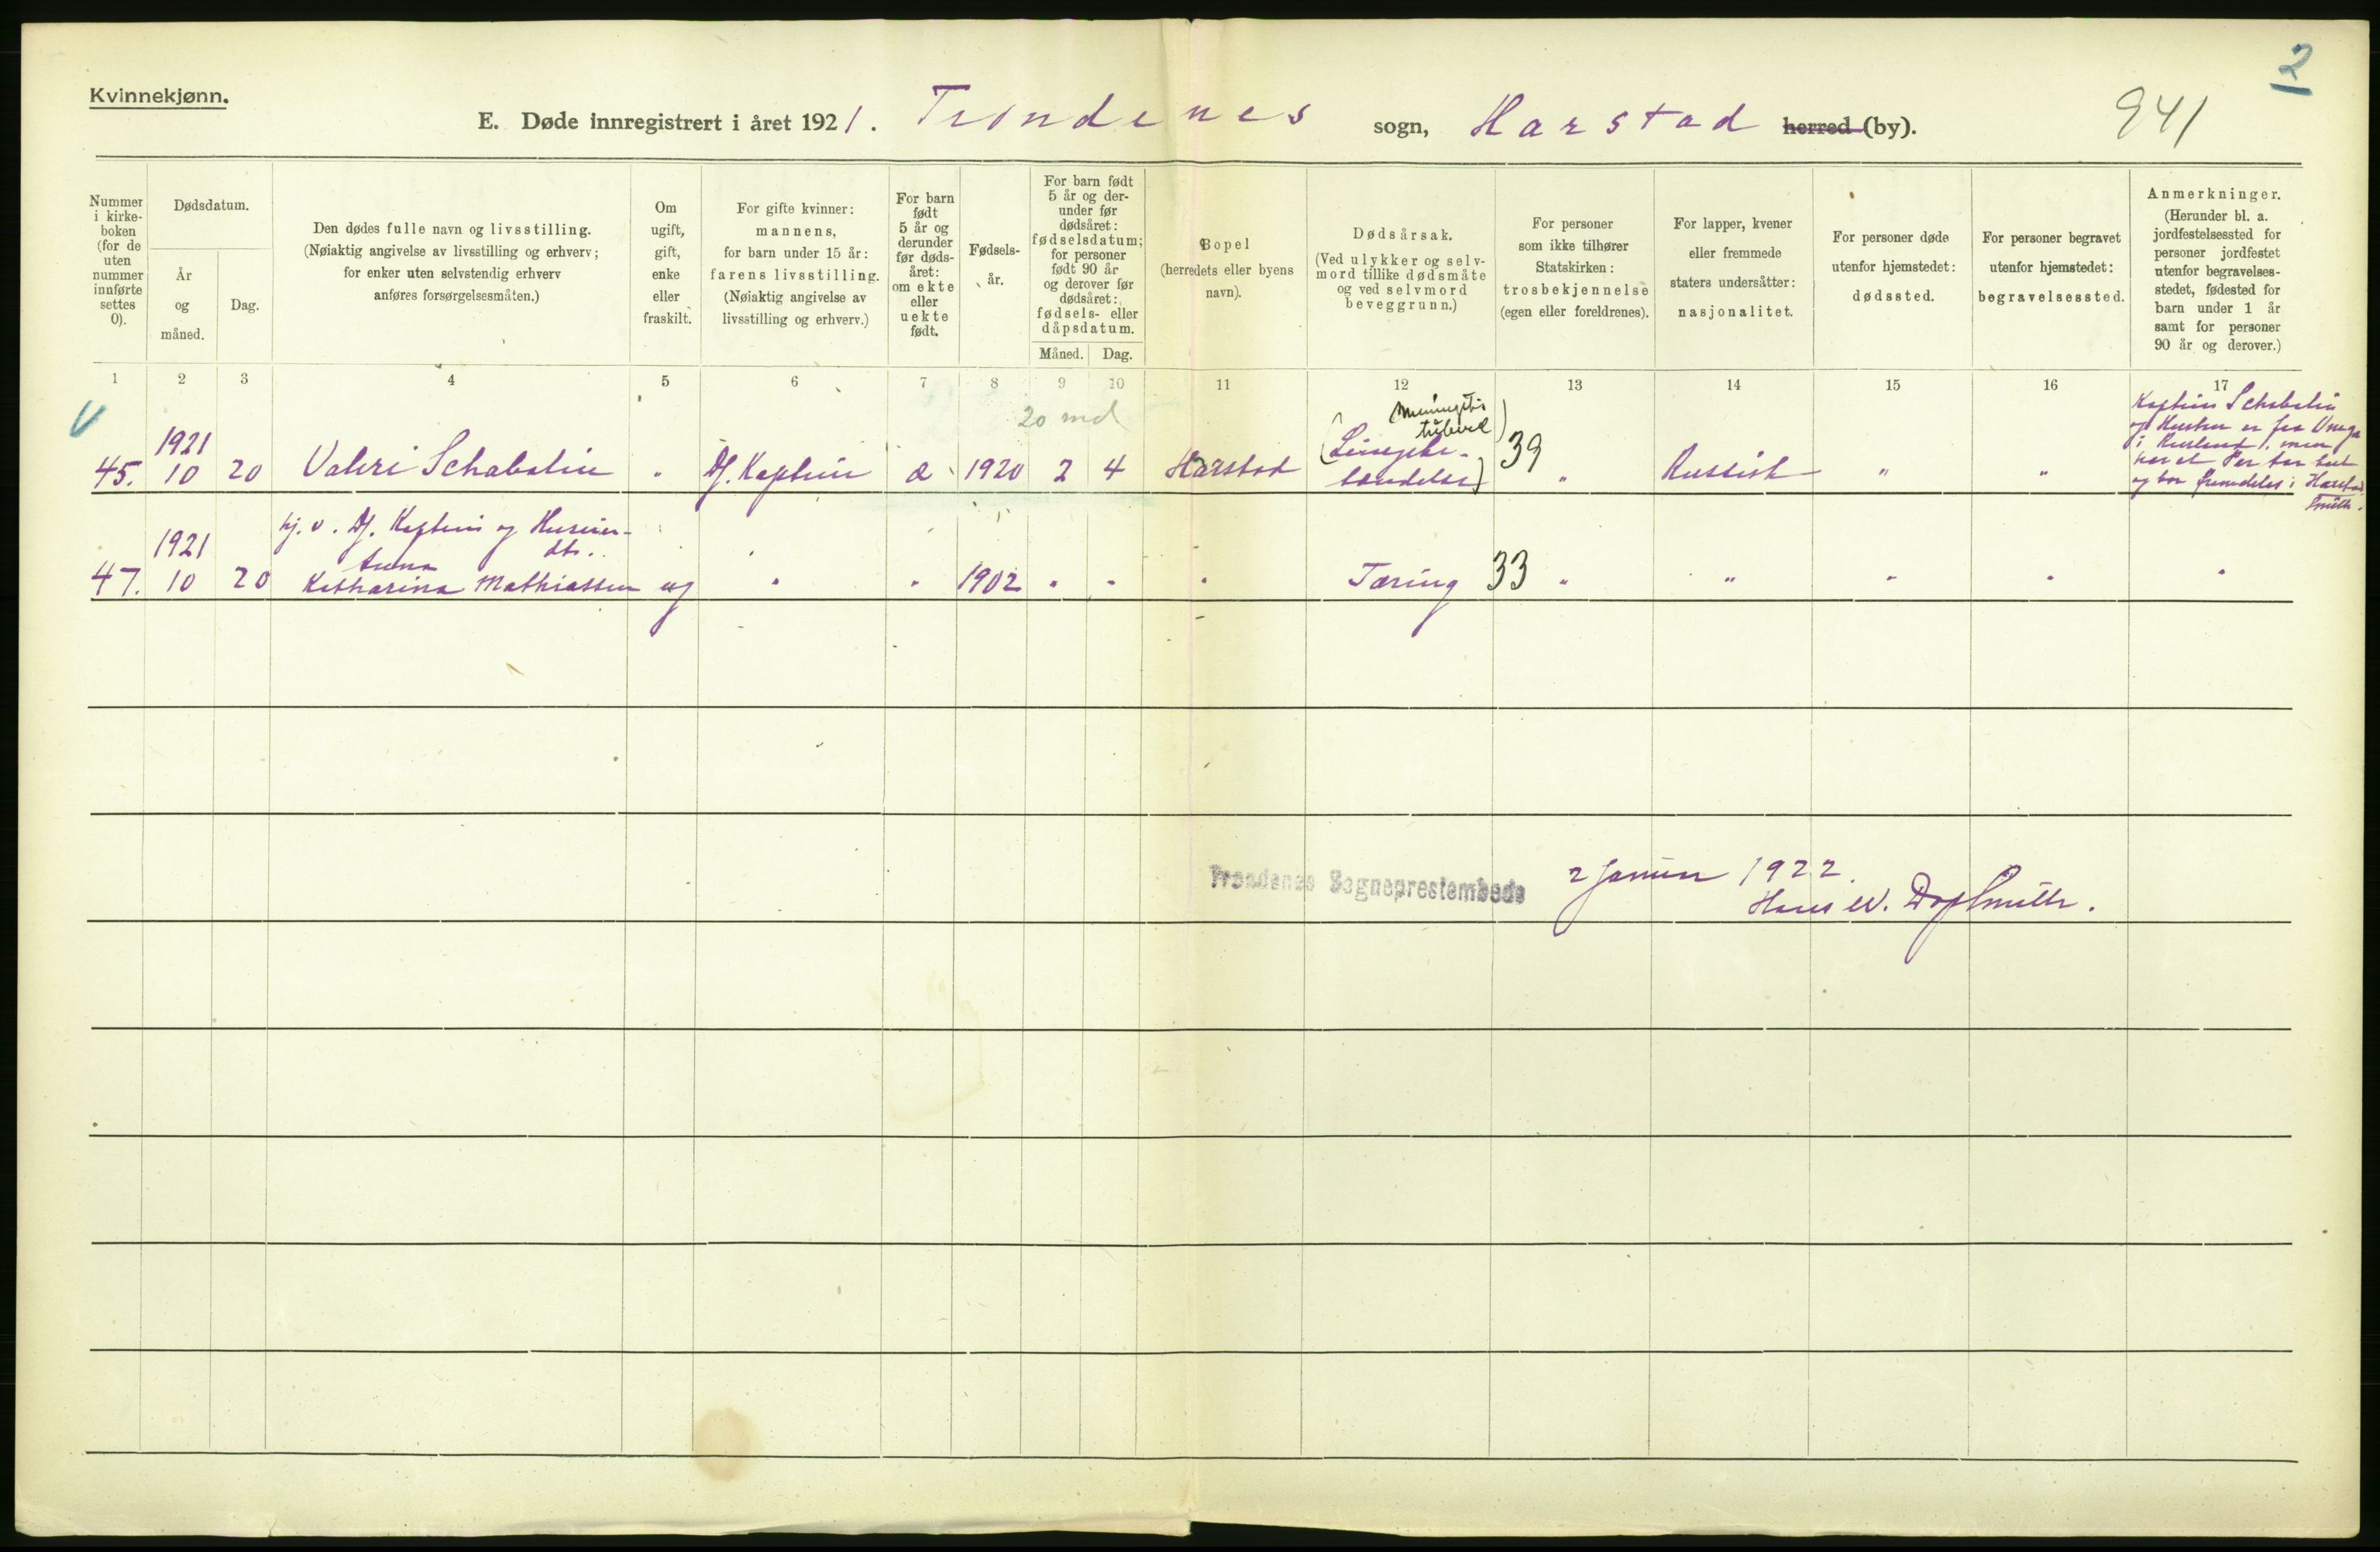 Kvinnekjønn.
2
941
E. Døde innregistrert i året 1921. Trondenes sogn, Harstad herred (by).
Nummer
i kirke-
boken
(for de
uten
nummer
innførte
settes
0).
Dødsdatum.
År
og
måned.
Dag.
Den dødes fulle navn og livsstilling.
(Nøiaktig angivelse av livsstilling og erhverv;
for enker uten selvstendig erhverv
anføres forsørgelsesmåten.)
Om
ugift,
gift,
enke
eller
fraskilt.
For gifte kvinner:
mannens,
for barn under 15 år:
farens livsstilling.
(Nøiaktig angivelse av
livsstilling og erhverv.)
For barn
født
5 år og
derunder
før døds-
året:
om ekte
eller
uekte
født.
Fødsels-
år.
For barn født
5 år og der-
under før
dødsåret:
fødselsdatum;
for personer
født 90 år
og derover før
dødsåret:
fødsels- eller
dåpsdatum.
Måned. Dag.
Bopel
(herredets eller byens
navn).
Dødsårsak.
(Ved ulykker og selv-
mord tillike dødsmåte
og ved selvmord
beveggrunn.)
For personer
som ikke tilhører
Statskirken:
trosbekjennelse
(egen eller foreldrenes).
For lapper, kvener
eller fremmede
staters undersåtter:
nasjonalitet.
For personer døde
utenfor hjemstedet:
dødssted.
For personer begravet
utenfor hjemstedet:
begravelsessted.
Anmerkninger.
(Herunder bl. a.
jordfestelsessted for
personer jordfestet
utenfor begravelses-
stedet, fødested for
barn under 1 år
samt for personer
90 år og derover.)
1 2 3 4 5 6 7 8 9 10 11 12 13 14 15 16 17
20 md
1921
45. 10 20 Valeri Schabalin " Df. Kaptein 1920 2 4 Harstad 39 " Russisk " "
Kaptein Schabalin
og Hustru er fra Onega
i Rusland, men
har et Par Aar
og bor fremdeles i Harstad
Smith.
hj. v. Df. Kaptein og
1921 Anna
47. 10 20 Katharina Mathiassen ug " " 1902 " " " Tæring 33 " " " " "
Trondenes Sogneprestembede 2 Januar 1922.
Hans W. Dop Smith.